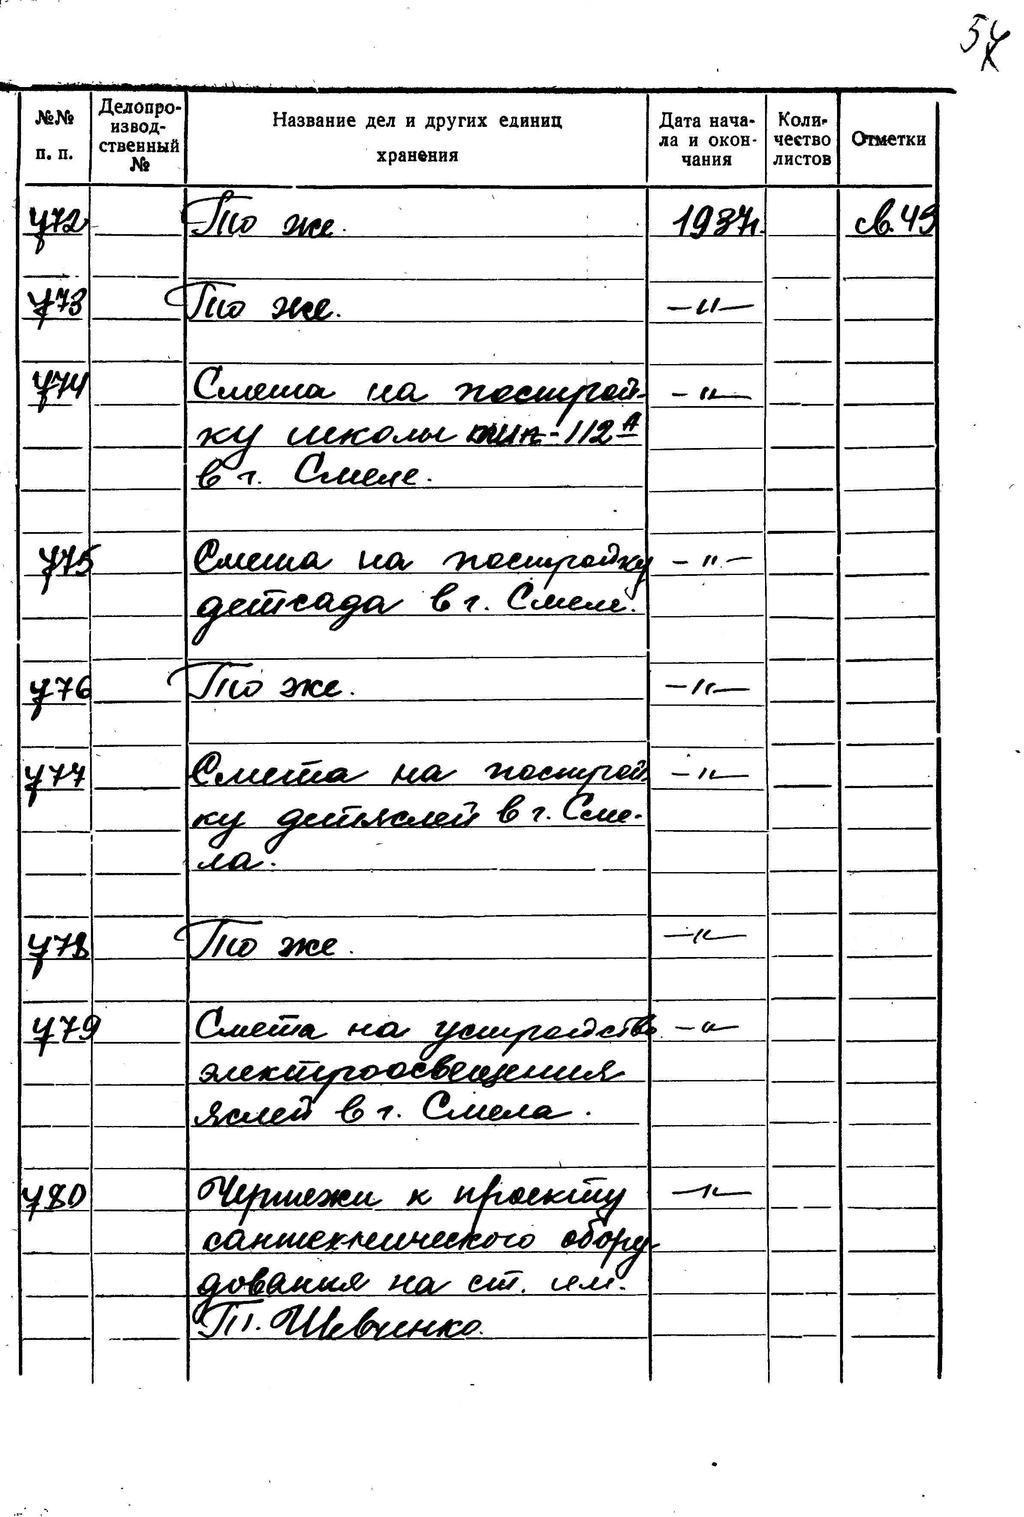 54
№№ п. п. Делопроизводственный № Название дел и других единиц хранения Дата начала и окончания Количество листов Отметки
472 То же. 1937г. св.43
473 То же. —"—
474 Смета на построй- —"—
ку школы тип-112А
в г. Смеле.
475 Смета на постройку —"—
детсада в г. Смеле.
476 То же. —"—
477 Смета на построй- —"—
ку детяслей в г. Сме-
ла.
478 То же. —"—
479 Смета на устройство —"—
электроосвещения
яслей в г. Смела.
480 Чертежи к проекту —"—
сантехнического обору-
дования на ст. им.
Т. Шевченко.